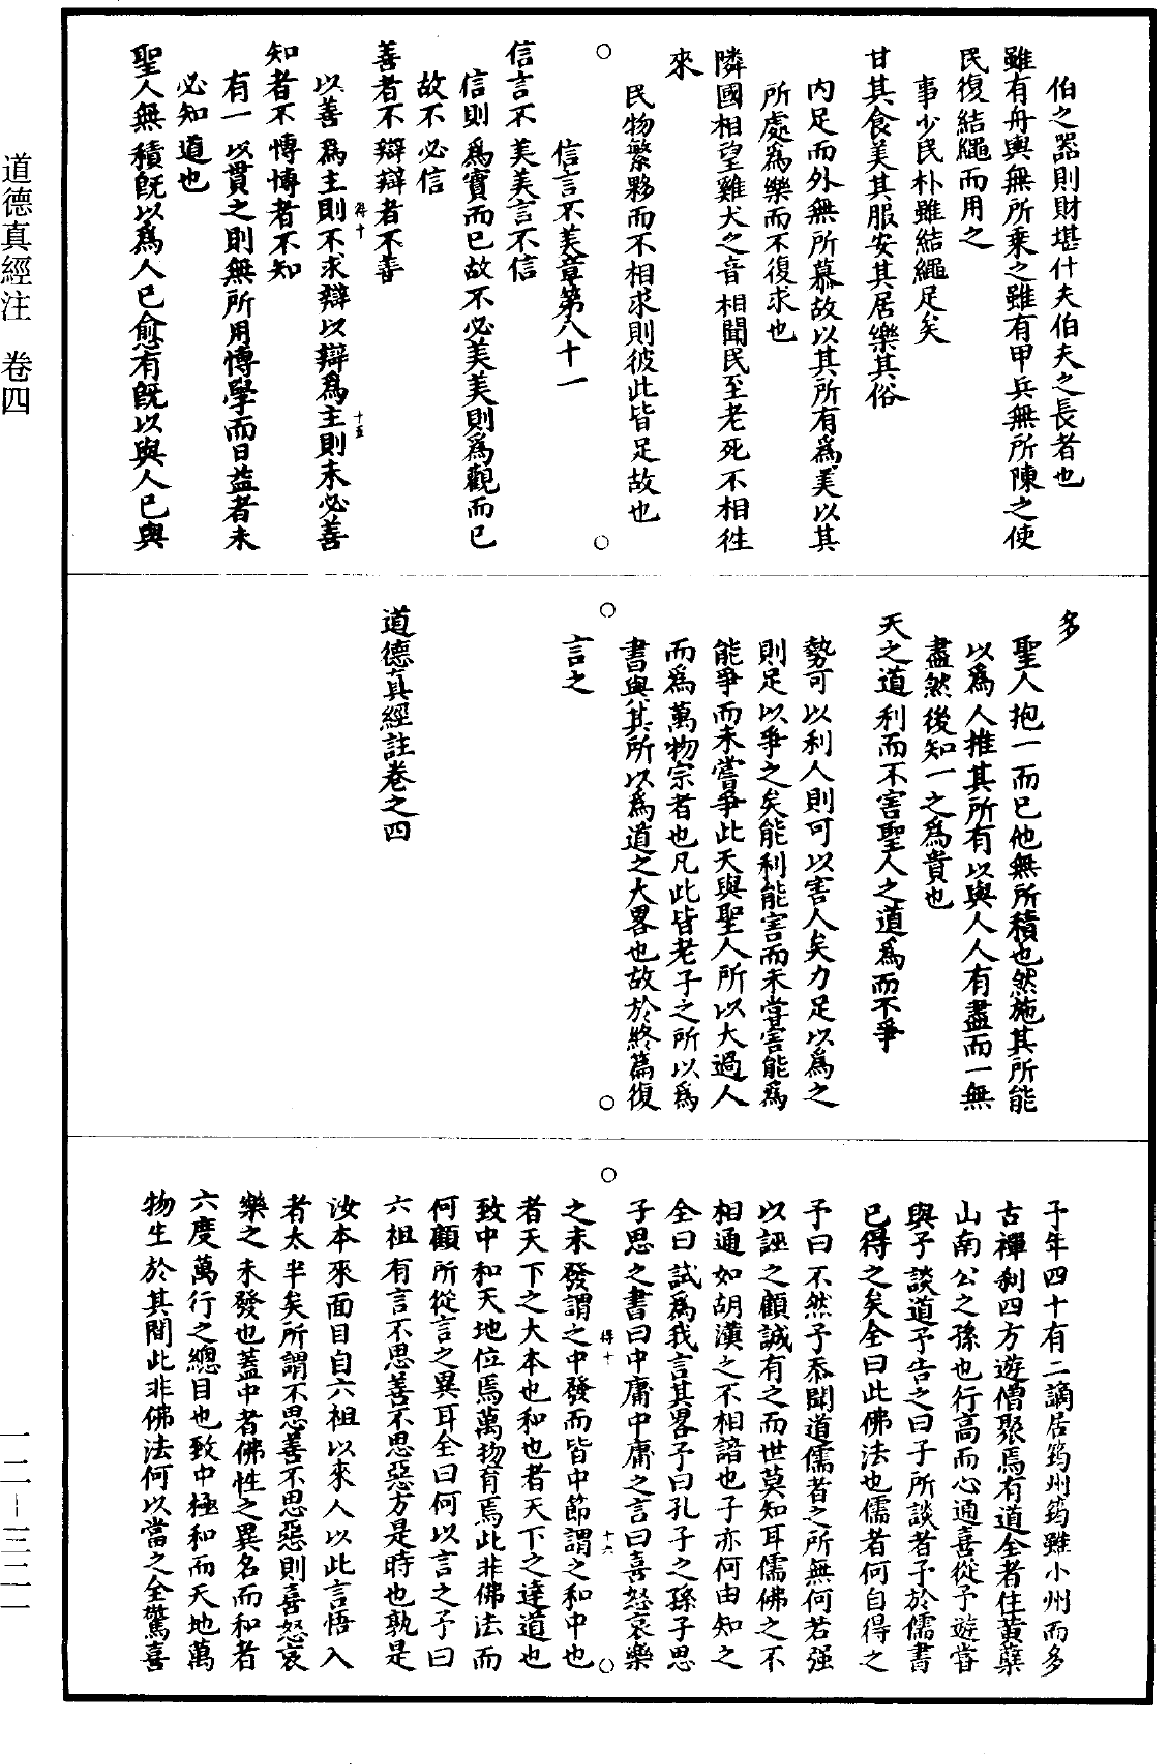 道德真經注　卷四
伯之器則財堪什夫伯夫之長者也
雖有舟輿無所乘之雖有甲兵無所陳之使
民復結繩而用之
事少民朴雖結繩足矣
甘其食美其服安其居樂其俗
內足而外無所慕故以其所有為美以其
所處為樂而不復求也
隣國相望雞犬之音相聞民至老死不相徃
來
民物繁夥而不相求則彼此皆足故也
信言不美章第八十一
信言不美美言不信
信則為實而已故不必美美則為觀而已
故不必信
善者不辯辯者不善
以善為主則不求辯以辯為主則未必善
得十
十五
知者不博博者不知
有一以貫之則無所用博學而日益者未
必知道也
聖人無積既以為人已愈有既以與人已與
多
聖人抱一而已他無所積也然施其所能
以為人推其所有以與人人有盡而一無
盡然後知一之為貴也
天之道利而不害聖人之道為而不爭
勢可以利人則可以害人矣力足以為之
則足以爭之矣能利能害而未嘗害能為
能爭而未嘗爭此天與聖人所以大過人
而為萬物宗者也凡此皆老子之所以為
書與其所以為道之大畧也故於終篇復
言之
道德真經註卷之四
予年四十有二謫居筠州筠雖小州而多
古禪刹四方遊僧聚焉有道全者住黃蘗
山南公之孫也行高而心通喜從予遊嘗
與予談道予告之曰子所談者予於儒書
已得之矣全曰此佛法也儒者何自得之
予曰不然予忝聞道儒者之所無何苦强
以誣之顧誠有之而世莫知耳儒佛之不
相通如胡漢之不相諳也子亦何由知之
全曰試為我言其畧予曰孔子之孫子思
子思之書曰中庸中庸之言曰喜怒哀樂
得十
十六
之未發謂之中發而皆中節謂之和中也
者天下之大本也和也者天下之達道也
致中和天地位焉萬物育焉此非佛法而
何顧所從言之異耳全曰何以言之予曰
六祖有言不思善不思惡方是時也孰是
汝本來面目自六祖以來人以此言悟入
者太半矣所謂不思善不思惡則喜怒哀
樂之未發也蓋中者佛性之異名而和者
六度萬行之總目也致中極和而天地萬
物生於其間此非佛法何以當之全驚喜
一二－三二一